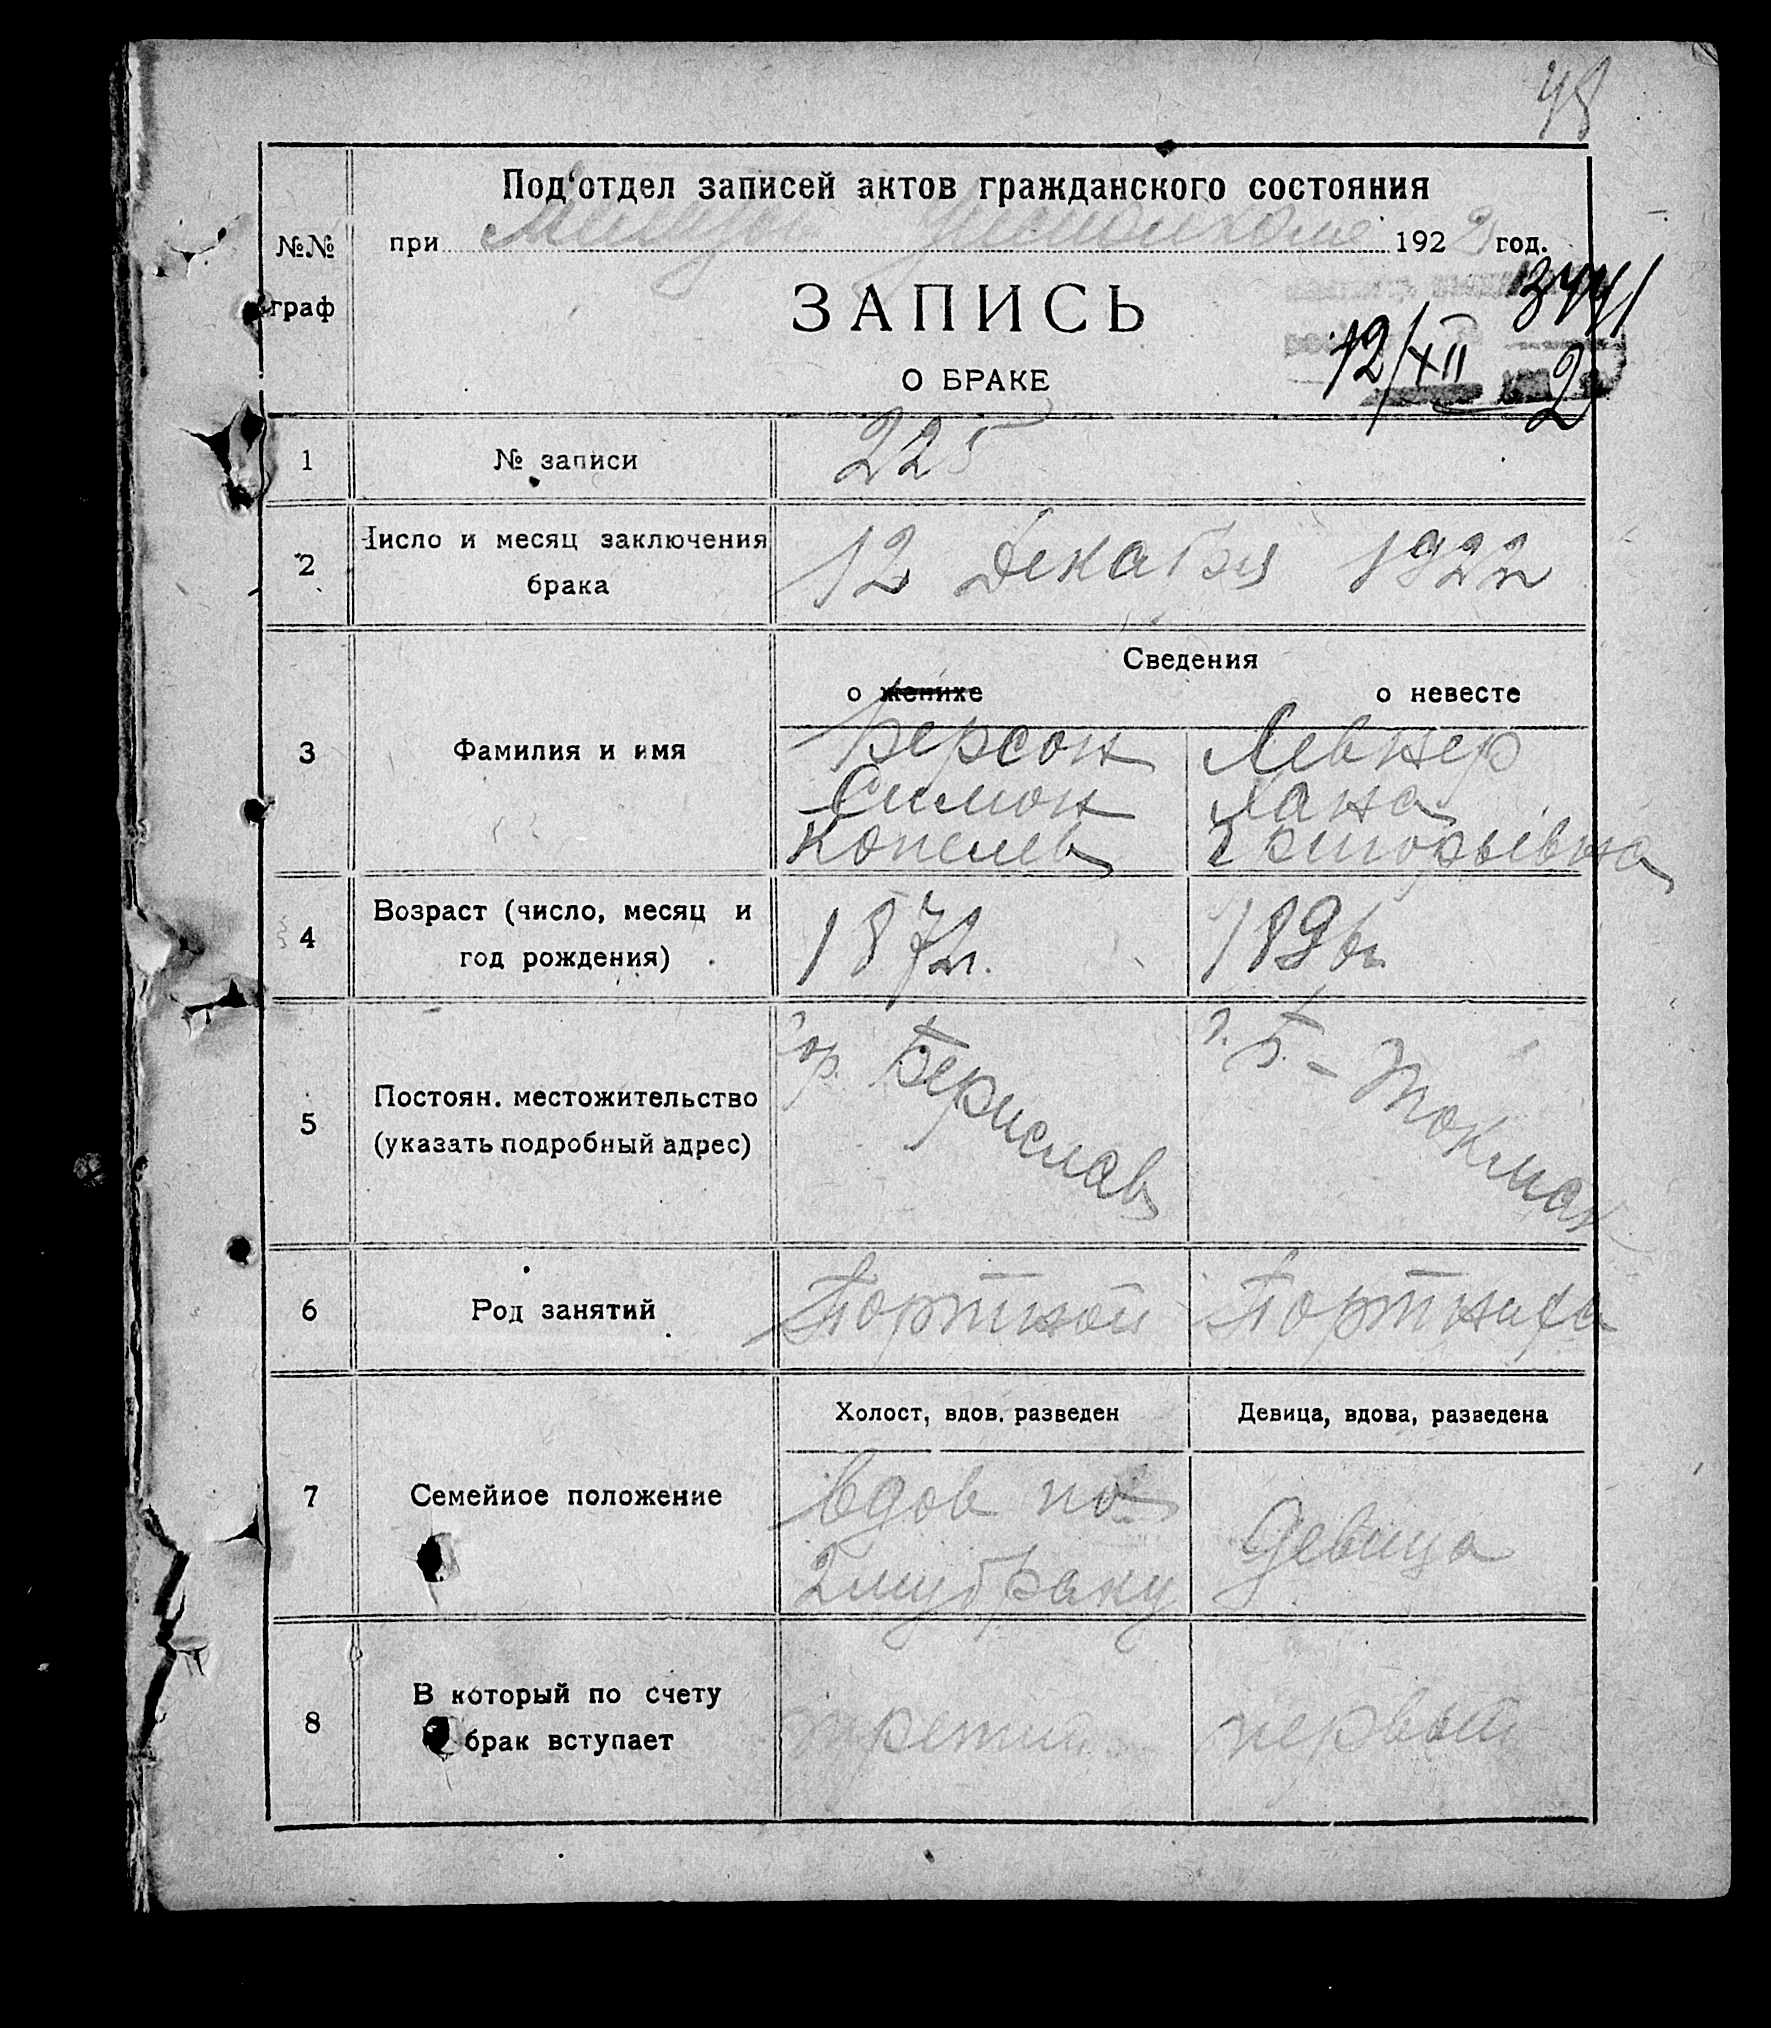 48
Под'отдел записей актов гражданского состояния
№№ граф
при 192 2 год.
ЗАПИСЬ
О БРАКЕ
12/XII 2
1 № записи 225
2 Число и месяц заключения брака 12 Декабря 1922 г
Сведения
о женихе о невесте
3 Фамилия и имя
Берсон Левнер
Симон Хана
Копелев Григорьевна
4 Возраст (число, месяц и год рождения) 1872 г. 1896 г.
5 Постоян. местожительство (указать подробный адрес) гор. Берислав г. Б.-Токмак
6 Род занятий Портной Портниха
Холост, вдов, разведен Девица, вдова, разведена
7 Семейное положение
вдов по Девица
2му браку
8 В который по счету брак вступает третий первый